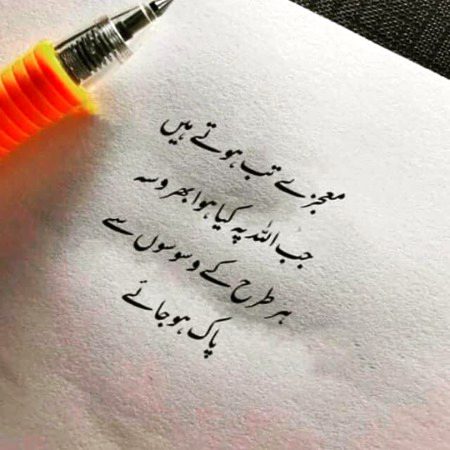 معجزے تب ہوتے ہیں
جب اللہ پہ کیا ہوا بھروسہ
ہر طرح کے وسوسوں سے
پاک ہو جائے